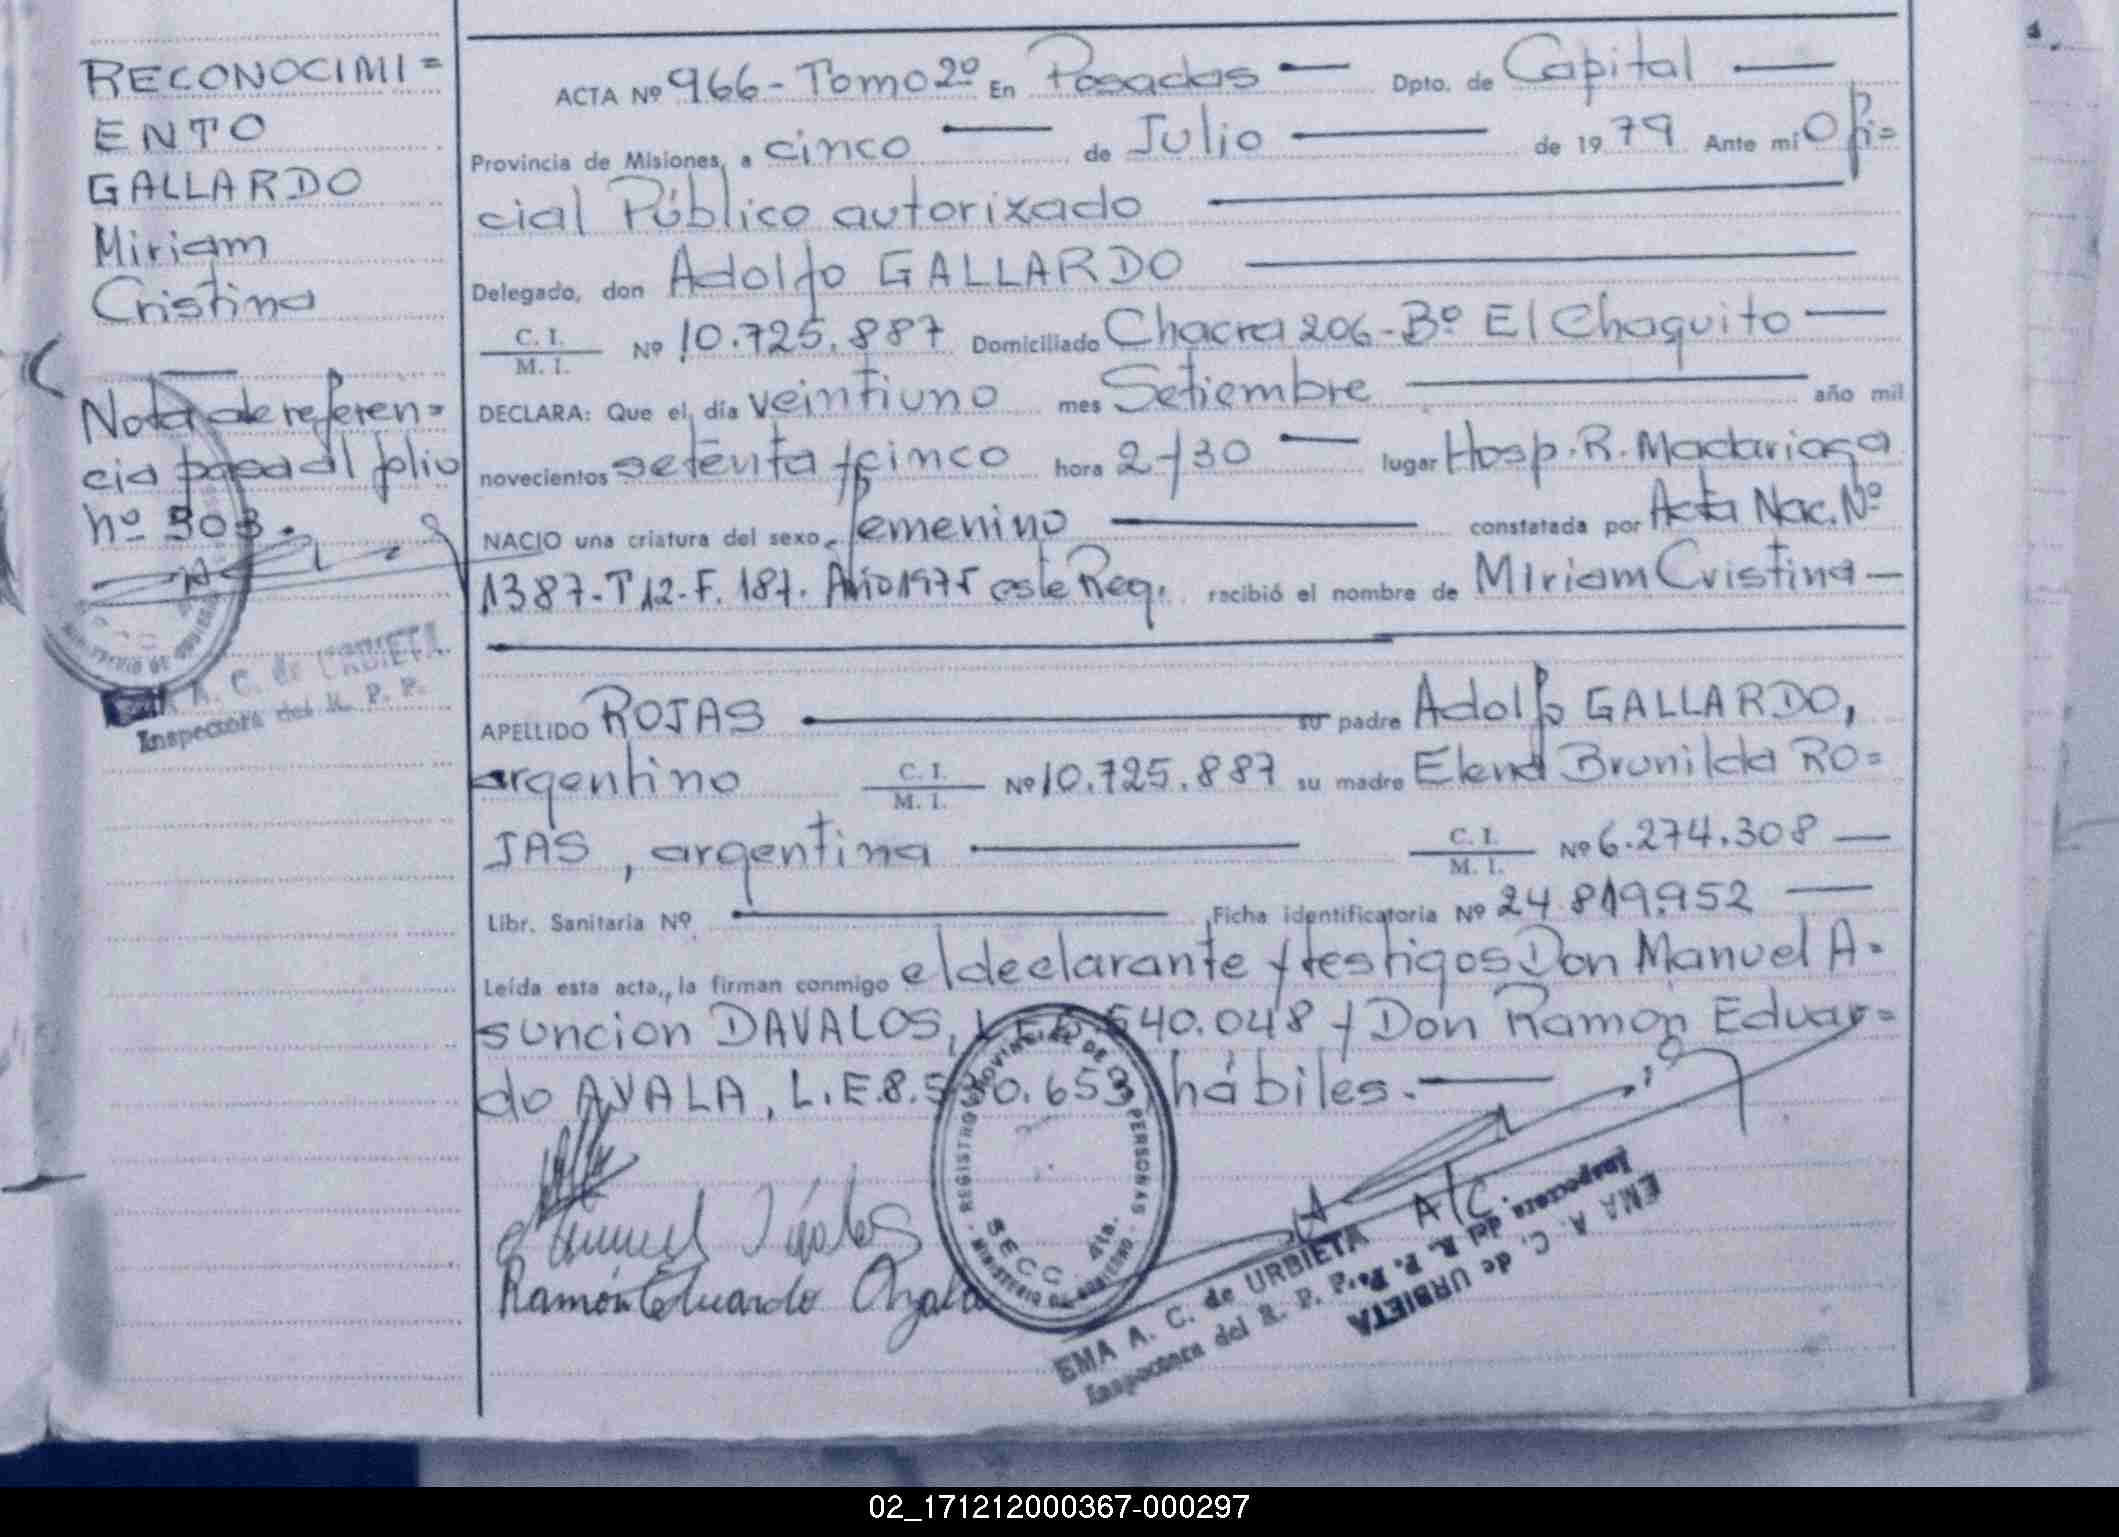 RECONOCIMI=
ENTO
GALLARDO
Miriam
Cristina
Nota de referen=
cia pasa al folio
nº 303.
A. C. de URBIETA
Inspectora del R. P. P.
ACTA Nº 966 - Tomo 2º En Posadas — Dpto. de Capital —
Provincia de Misiones, a cinco — de Julio — de 1979 Ante mi Ofi=
cial Público autorizado —
Delegado, don Adolfo GALLARDO —
C. I.
M. I. Nº 10.725.887 Domiciliado Chacra 206 - Bº El Chaquito —
DECLARA: Que el día veintiuno mes Setiembre — año mil
novecientos setenta y cinco hora 2 y 30 — lugar Hosp. R. Madariaga
NACIO una criatura del sexo femenino — constatada por Acta Nac. Nº
1387 - T 12 - F. 187. Año 1975 este Reg. recibió el nombre de Miriam Cristina —
APELLIDO ROJAS — su padre Adolfo GALLARDO,
argentino C. I. M. I. Nº 10.725.887 su madre Elena Brunilda RO=
JAS, argentina — C. I. M. I. Nº 6.274.308 —
Libr. Sanitaria Nº — Ficha identificatoria Nº 24.819.952 —
Leída esta acta, la firman conmigo el declarante y testigos Don Manuel A=
suncion DAVALOS, 540.048 y Don Ramón Eduar=
do AYALA, L.E. hábiles. —
Ramón Eduardo Ayala
REGISTRO PROVINCIAL DE LAS PERSONAS
SECC. 4ta.
MINISTERIO DE GOBIERNO
A/C.
EMA A. C. de URBIETA
Inspectora del R. P. P.
EMA A. C. de URBIETA
Inspectora del R. P. P.
02_171212000367-000297